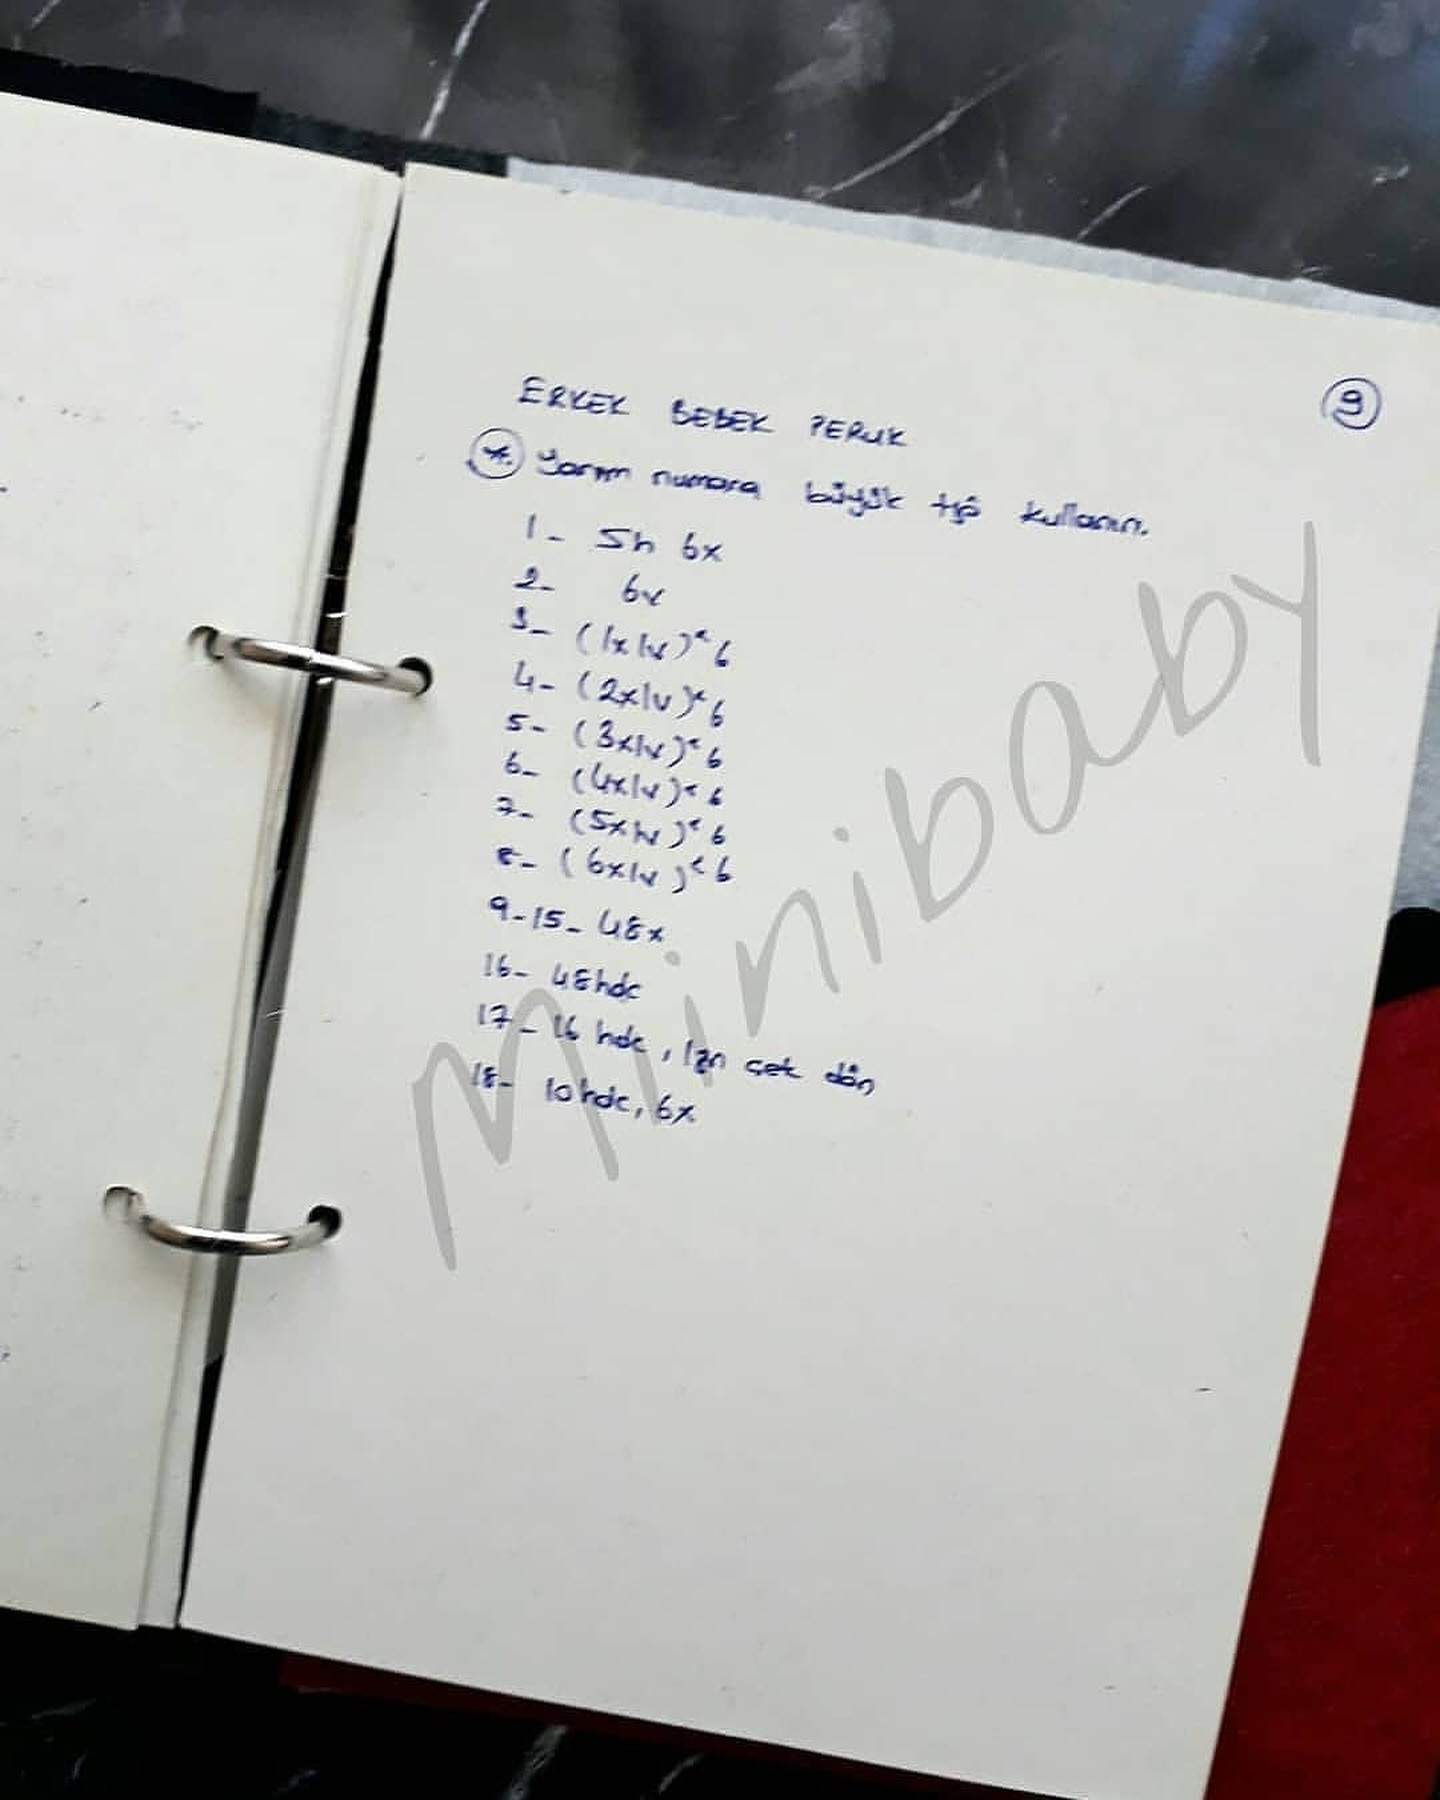 ERKEK BEBEK PERUK
9
*. Yarım numara büyük tığ kullanın.
1- Sh 6x
2- 6v
3- (1x1v)*6
4- (2x1v)*6
5- (3x1v)*6
6- (4x1v)*6
7- (5x1v)*6
8- (6x1v)*6
9-15- 48x
16- 48hdc
17- 16 hdc, 1zn çek dön
18- 10hdc, 6x
Minibaby